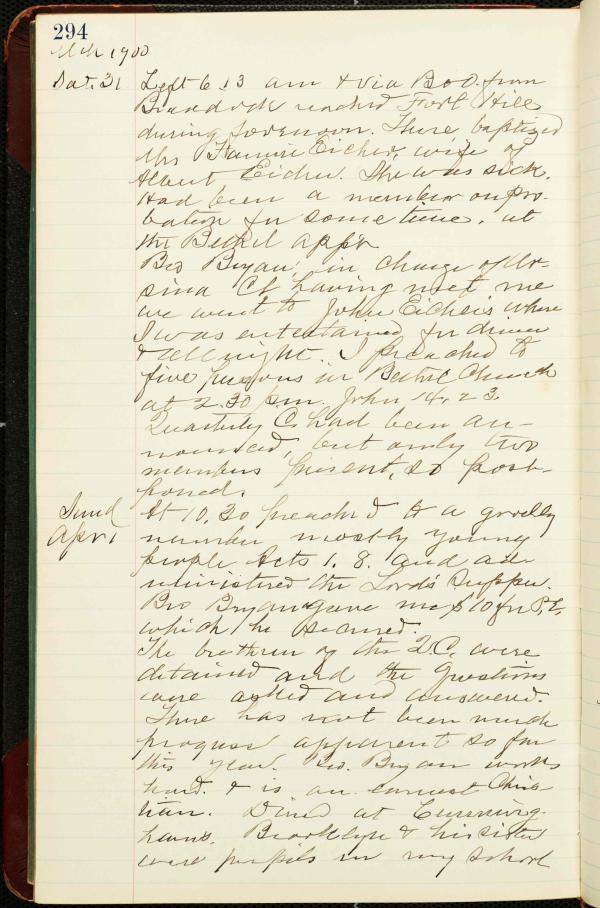 294
Mch 1900
Sat. 31 Left 6.13 am & via B&O. from
Braddock reached Fort Hill
during forenoon. There, baptized
Mrs Fannie Eicher, wife of
Albert Eicher. She was sick.
Had been a member on pro-
bation for some time, at
the Bethel app't
Bro Bryan, in charge of Ur-
sina Ct. having met me
we went to John Eicher's where
I was entertained for dinner
& all night. I preached to
five persons in Bethel Church
at 2.30 p.m. John 14, 23.
Quarterly C. had been an-
nounced, but only two
members present, so post-
poned.
Sund At 10,30 preached to a goodly
Apr 1 number mostly young
people Acts 1. 8. and ad-
ministered the Lord's Supper.
Bro Bryan gave me $10 for P.E.
which he secured.
The brethren of the Q.C. were
detained and the Questions
were asked and answered.
There has not been much
progress apparent so far
this year. Bro. Bryan works
hard. & is an earnest Chris-
tian. Dined at Cunning-
hams. Brooklyn & his sister
were pupils in my school